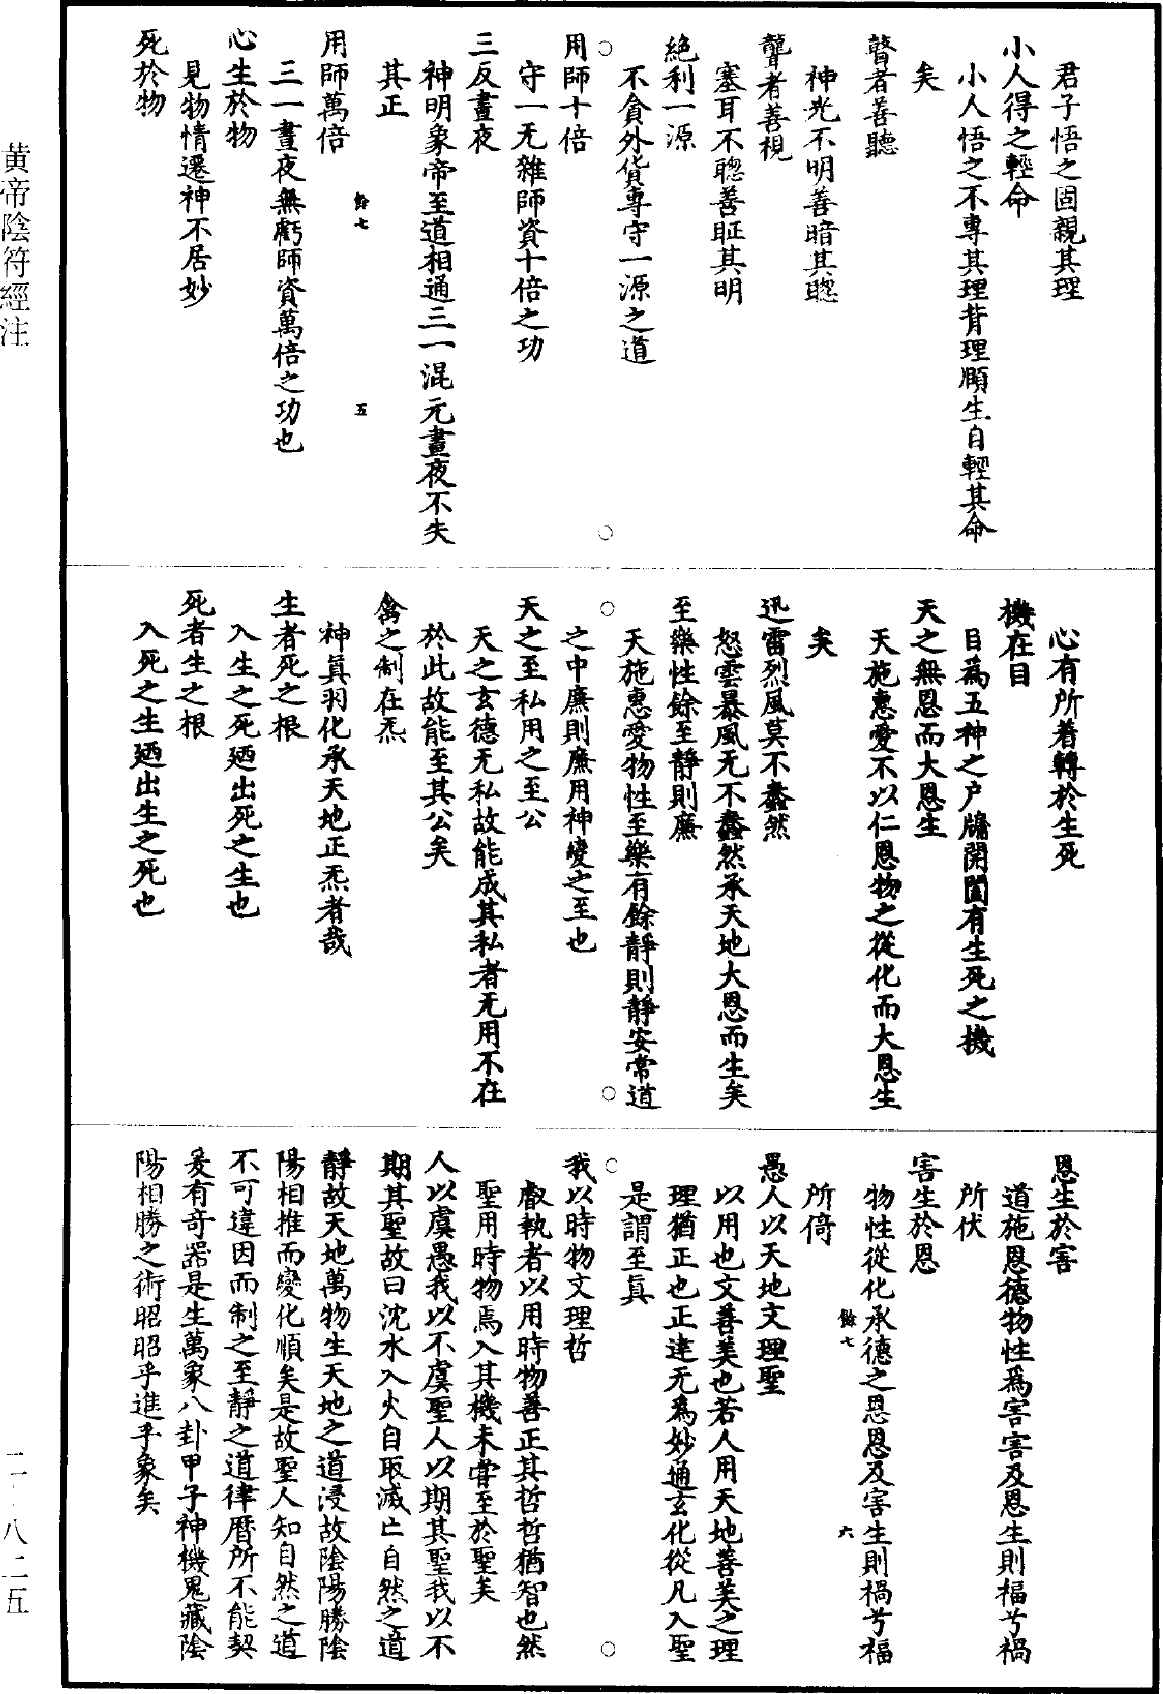 君子悟之固親其理
小人得之輕命
小人悟之不專其理背理順生自輕其命
矣
瞽者善聽
神光不明善暗其聦
聾者善視
塞耳不聦善眐其明
絕利一源
不貪外貨專守一源之道
用師十倍
守一无雜師資十倍之功
三反晝夜
神明象帝至道相通三一混元晝夜不失
其正
餘七 五
用師萬倍
三一晝夜無虧師資萬倍之功也
心生於物
見物情遷神不居妙
死於物
心有所着轉於生死
機在目
目為五神之户牖開闔有生死之機
天之無恩而大恩生
天施惠愛不以仁恩物之從化而大恩生
矣
迅雷烈風莫不蠢然
怒雲暴風无不蠢然承天地大恩而生矣
至樂性餘至靜則廉
天施惠愛物性至樂有餘靜則靜安常道
之中廉則廉用神變之至也
天之至私用之至公
天之玄德无私故能成其私者无用不在
於此故能至其公矣
禽之制在炁
神眞羽化承天地正炁者哉
生者死之根
入生之死廼出死之生也
死者生之根
入死之生廼出生之死也
恩生於害
道施恩德物性為害害及恩生則福兮禍
所伏
害生於恩
物性從化承德之恩恩及害生則禍兮福
所倚
餘七 六
愚人以天地文理聖
以用也文善美也若人用天地善美之理
理猶正也正達无為妙通玄化從凡入聖
是謂至眞
我以時物文理哲
叡執者以用時物善正其哲哲猶智也然
聖用時物焉入其機未嘗至於聖矣
人以虞愚我以不虞聖人以期其聖我以不
期其聖故曰沈水入火自取滅亡自然之道
靜故天地萬物生天地之道浸故陰陽勝陰
陽相推而變化順矣是故聖人知自然之道
不可違因而制之至靜之道律曆所不能契
爰有竒器是生萬象八卦甲子神機鬼藏陰
陽相勝之術昭昭乎進乎象矣
黄帝陰符經注
二－八二五